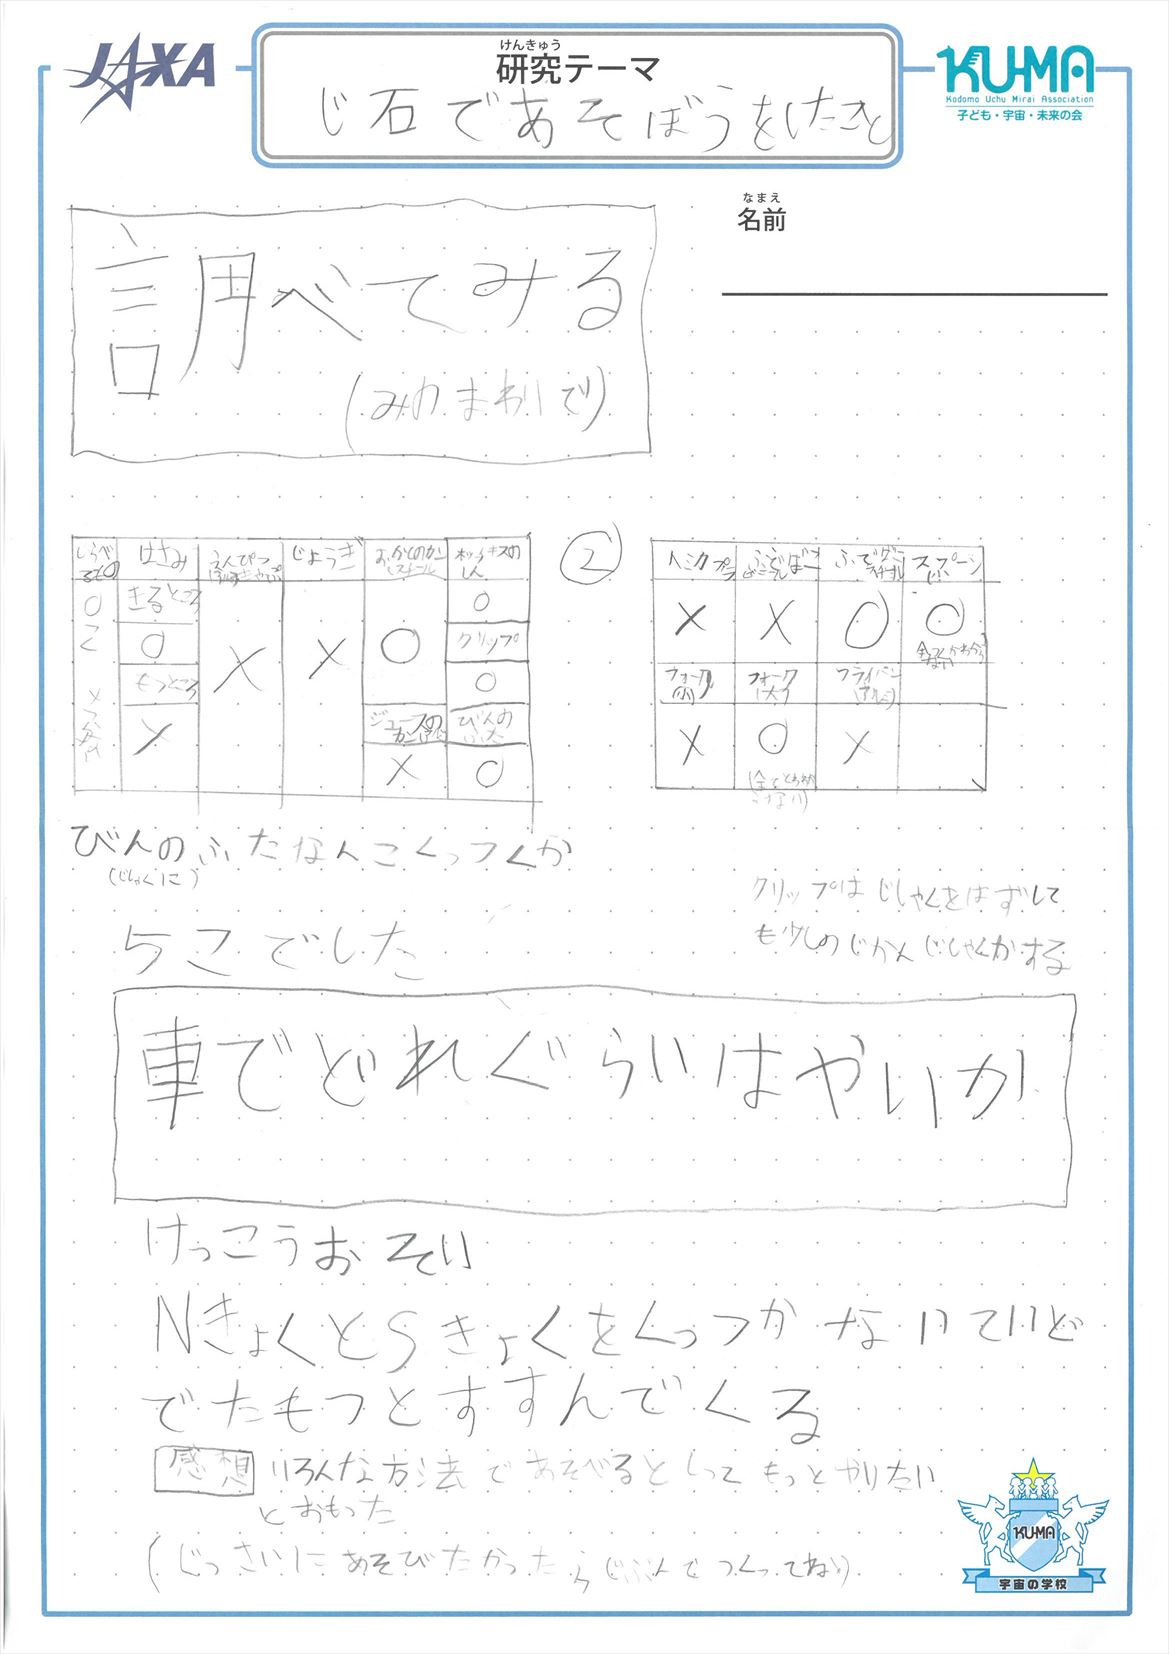 JAXA
けんきゅう
研究テーマ
じ石であそぼうをしたこと
KU-MA
Kodomo Uchu Mirai Association
子ども・宇宙・未来の会
なまえ
名前
調べてみる
(みのまわりで)
しらべるもの
はさみ
えんぴつ
じょうぎ
ホッチキスのしん
○
きるところ
○
もつところ
×
×
×
○
ジュースのかん
×
○
クリップ
○
びんのふた
○
②
スプーン
×
×
○
○
フォーク(小)
フォーク(大)
フライパン
×
○
×
びんのふたなんこくっつくか
(じしゃくに)
5こでした
クリップはじしゃくをはずして
も少しのじかんじしゃくかする
車でどれぐらいはやいか
けっこうおそい
NきょくとSきょくをくっつかないていど
でたもつとすすんでくる
感想 いろんな方法であそべるとしってもっとやりたい
とおもった
(じっさいにあそびたかったらじぶんでつくってね)
KU-MA
宇宙の学校